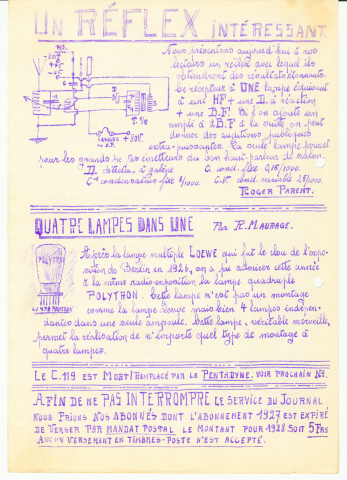 UN RÉFLEX INTÉRESSANT
Nous présentons aujourd'hui à nos
lecteurs un réflex avec lequel ils
obtiendront des résultats étonnants.
Ce récepteur à UNE lampe équivaut
à une HF + une D. à réaction
+ une B.F. Si l'on ajoute un
ampli à 2 B.F à la suite on peut
donner des auditions publiques
extra-puissantes. La seule lampe permet
pour les grands postes émetteurs du bon haut-parleur de salon.
D detecteur à galène C. cond. fixe 0,15/1000.
C" condensateur fixe 2/1000. C.V. cond variable /1000.
ROGER PARENT.
+80V
CASQUE
T. 1/5
QUATRE LAMPES DANS UNE Par R. MAURAGE.
POLYTRON
Après la lampe multiple LOEWE qui fut le clou de l'expo-
sition de Berlin en 1926, on a pu admirer cette année
à la même radio-exposition la lampe quadruple
POLYTRON. Cette lampe n'est pas un montage
comme la lampe Loewe mais bien 4 lampes indépen-
dantes dans une seule ampoule. Cette lampe, véritable merveille,
permet la réalisation de n'importe quel type de montage à
quatre lampes.
LE C.119 EST MORT! REMPLACÉ PAR LE PENTADYNE. VOIR PROCHAIN N°.
AFIN DE NE PAS INTERROMPRE LE SERVICE DU JOURNAL
NOUS PRIONS NOS ABONNÉS DONT L'ABONNEMENT 1927 EST EXPIRÉ
DE VERSER PAR MANDAT POSTAL LE MONTANT POUR 1928 SOIT 5 FRS
AUCUN VERSEMENT EN TIMBRES-POSTE N'EST ACCEPTÉ.